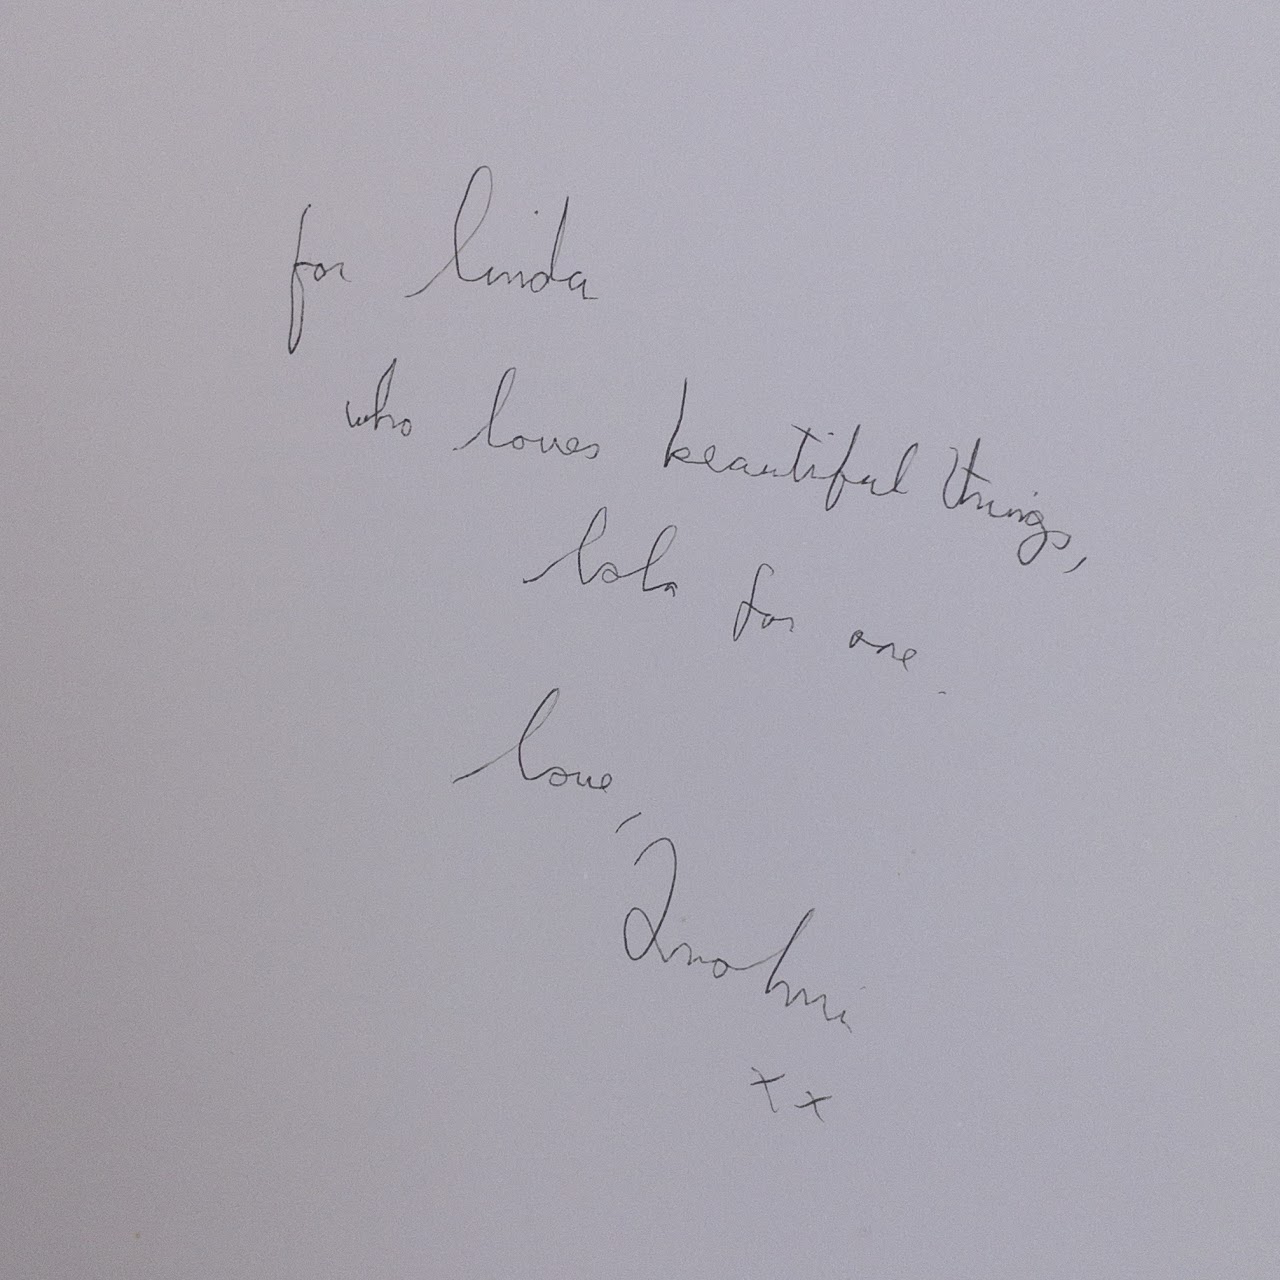 for linda
who loves beautiful things,
lola for one.
love,
xx